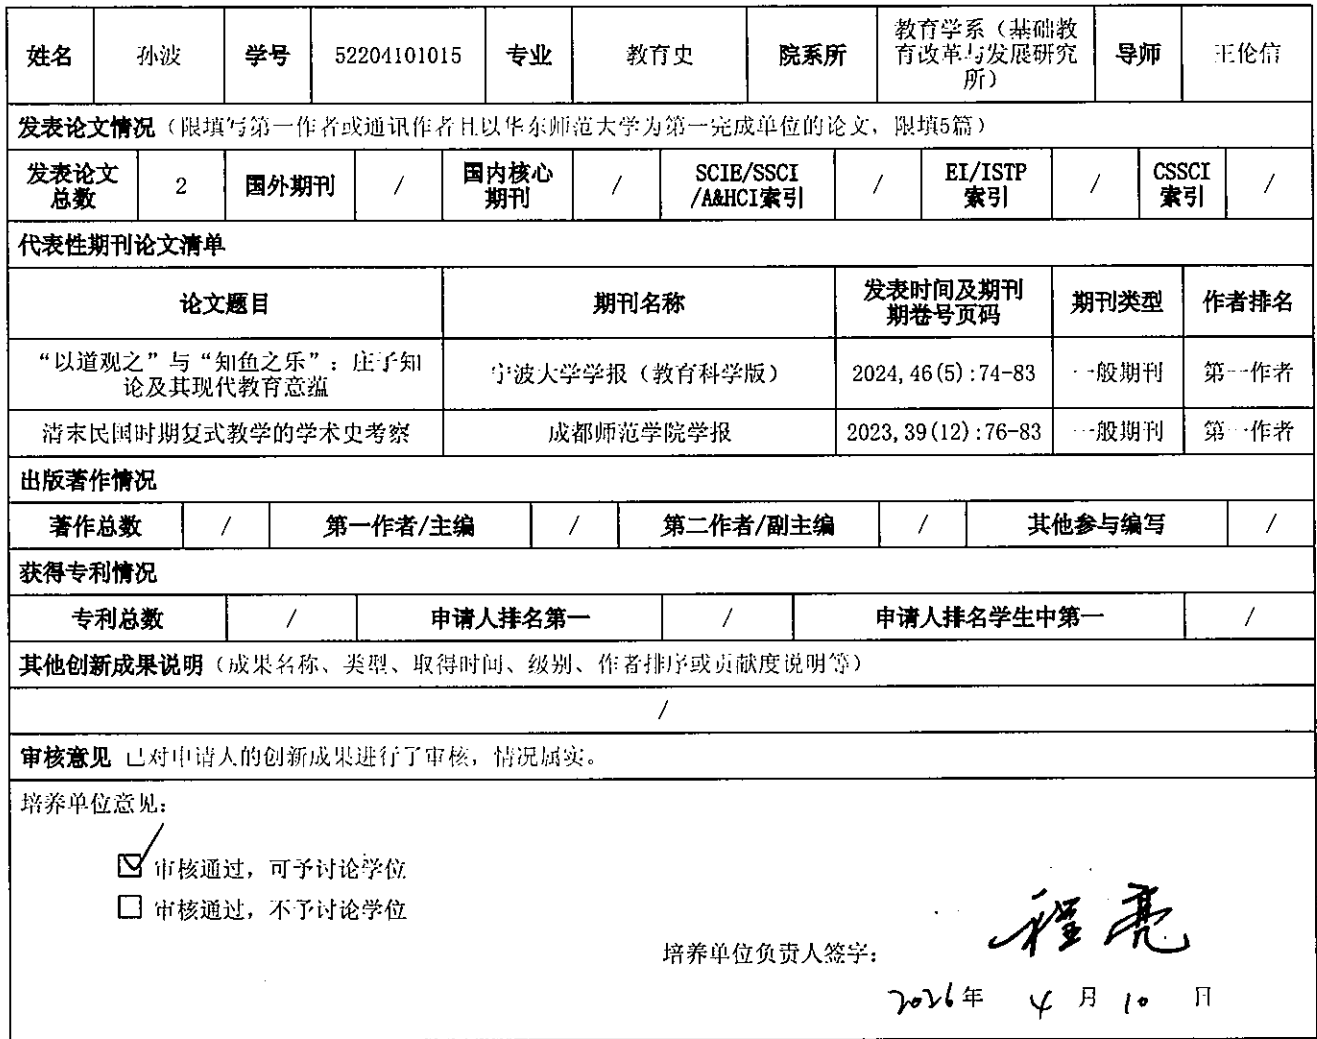 姓名 孙波 学号 52204101015 专业 教育史 院系所 教育学系（基础教育改革与发展研究所） 导师 王伦信
发表论文情况（限填写第一作者或通讯作者且以华东师范大学为第一完成单位的论文，限填5篇）
发表论文总数 2 国外期刊 / 国内核心期刊 / SCIE/SSCI/A&HCI索引 / EI/ISTP索引 / CSSCI索引 /
代表性期刊论文清单
论文题目 期刊名称 发表时间及期刊期卷号页码 期刊类型 作者排名
“以道观之”与“知鱼之乐”：庄子知论及其现代教育意蕴 宁波大学学报（教育科学版） 2024,46(5):74-83 一般期刊 第一作者
清末民国时期复式教学的学术史考察 成都师范学院学报 2023,39(12):76-83 一般期刊 第一作者
出版著作情况
著作总数 / 第一作者/主编 / 第二作者/副主编 / 其他参与编写 /
获得专利情况
专利总数 / 申请人排名第一 / 申请人排名学生中第一 /
其他创新成果说明（成果名称、类型、取得时间、级别、作者排序或贡献度说明等）
/
审核意见 已对申请人的创新成果进行了审核，情况属实。
培养单位意见：
☑ 审核通过，可予讨论学位
☐ 审核通过，不予讨论学位
培养单位负责人签字： 程亮
2026年 4 月 10 日